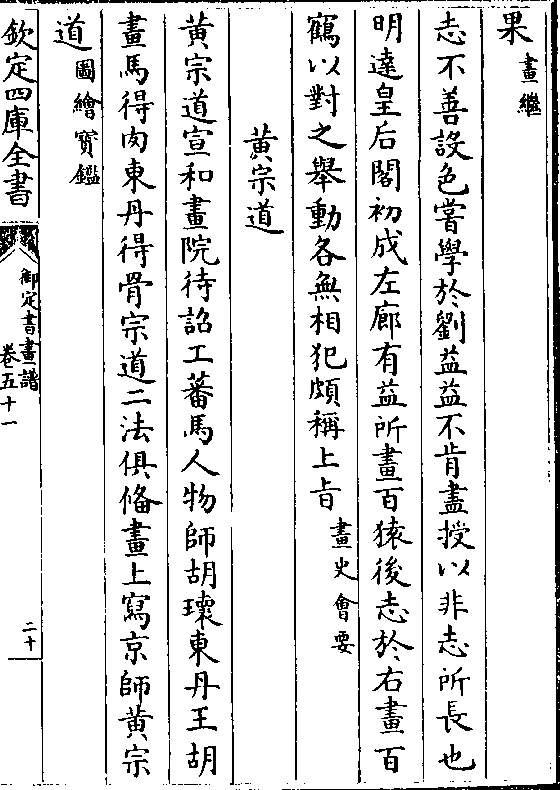 果畫繼
志不善設色嘗學於劉益益不肯盡授以非志所長也
明達皇后閣初成左廊有益所畫百猿後志於右畫百
鶴以對之舉動各無相犯頗稱上旨畫史會要
黄宗道
黄宗道宣和畫院待詔工蕃馬人物師胡瓌東丹王胡
畫馬得肉東丹得骨宗道二法俱俻畫上寫京師黄宗
道圖繪寳鑑
欽定四庫全書
御定書畫譜
卷五十一
二十